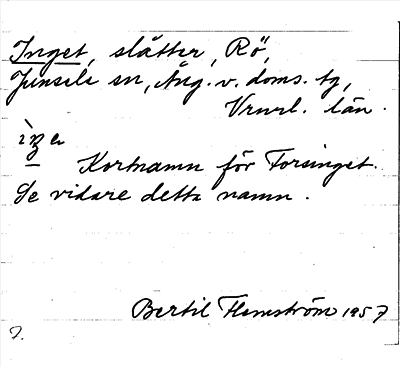 Inget, slåtter, Rö,
Junsele sn, Ång. v. doms. tg,
Vrnrl. län.
ìŋe
Kortnamn för Forsinget.
Se vidare detta namn.
Bertil Flemström 1957